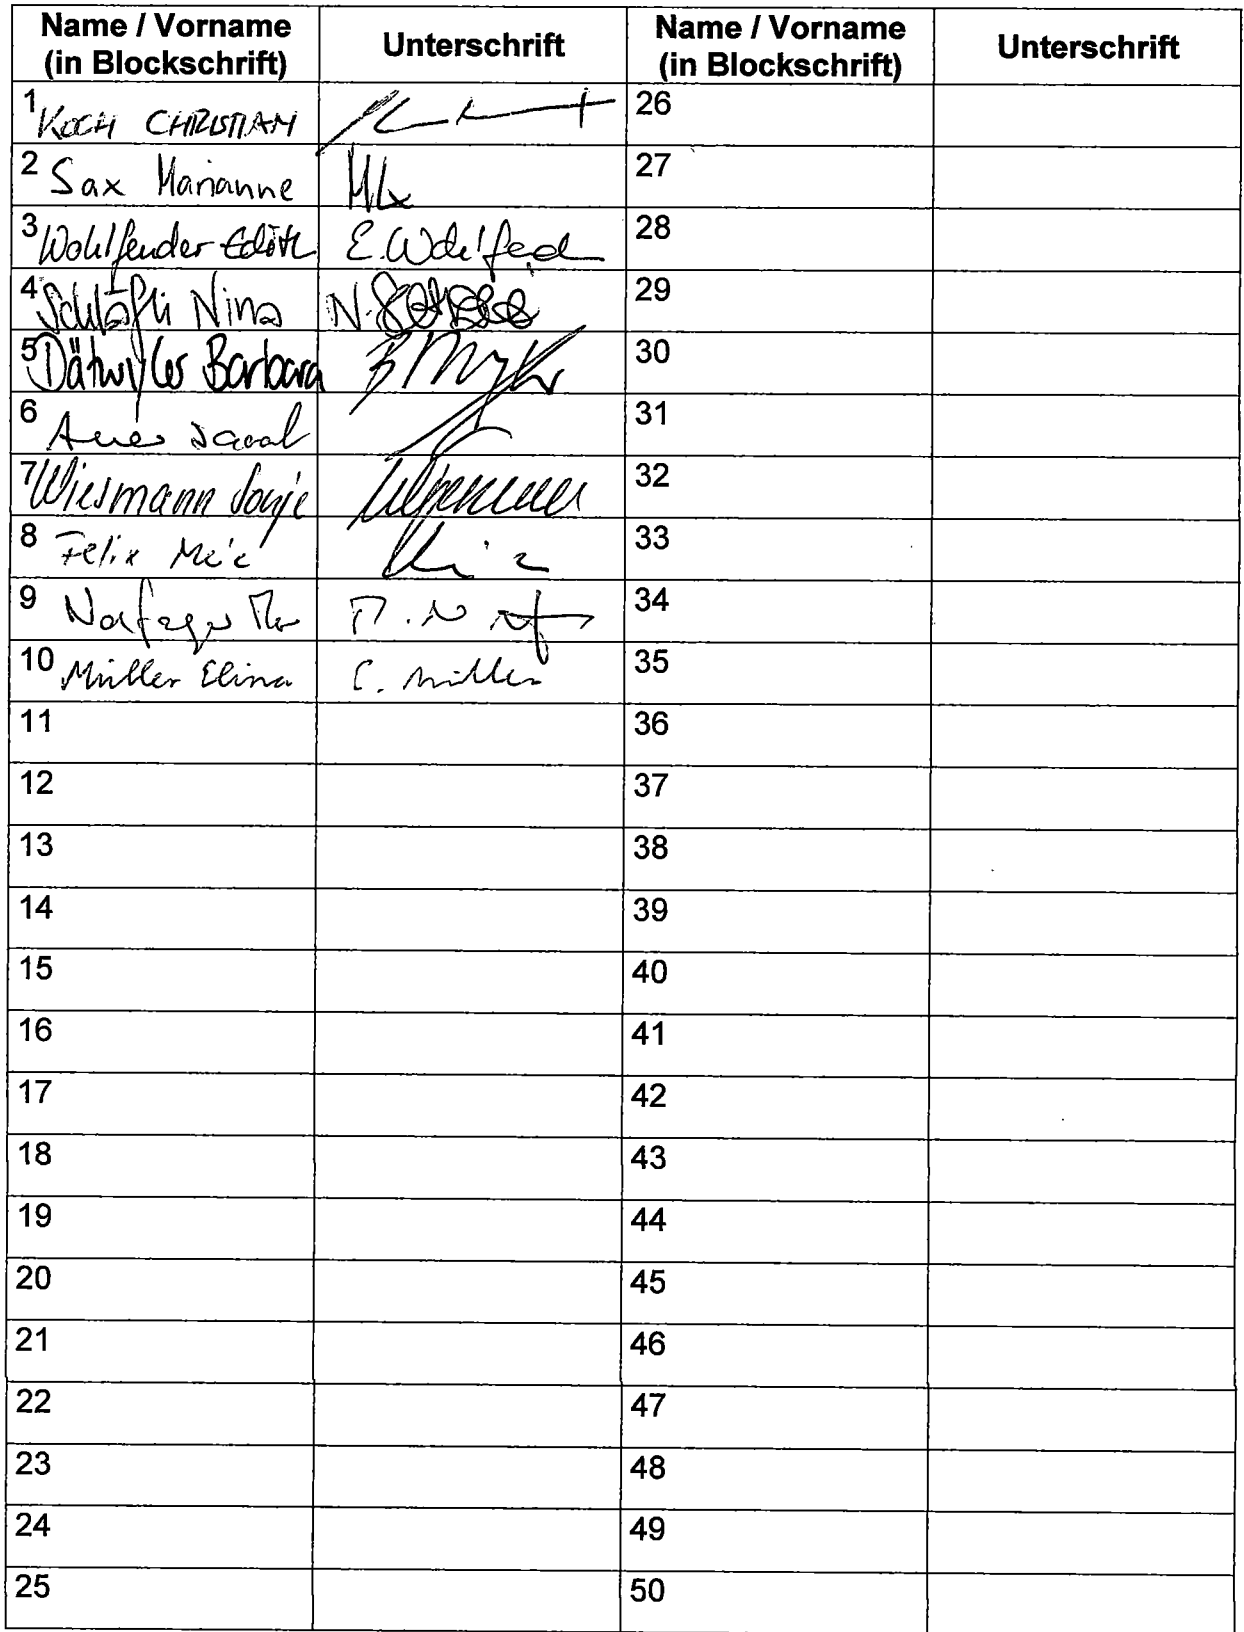 Name / Vorname Unterschrift Name / Vorname Unterschrift
(in Blockschrift) (in Blockschrift)
1 KOCH CHRISTIAN 26
2 Sax Marianne 27
3 Wohlfender Edith E. Wohlfend 28
4 Schläfli Nina N. 29
5 Dätwyler Barbara 30
6 Auer Jacob 31
7 Wiesmann Sonja 32
8 Felix Meie 33
9 34
10 Müller Elina E. Müller 35
11 36
12 37
13 38
14 39
15 40
16 41
17 42
18 43
19 44
20 45
21 46
22 47
23 48
24 49
25 50